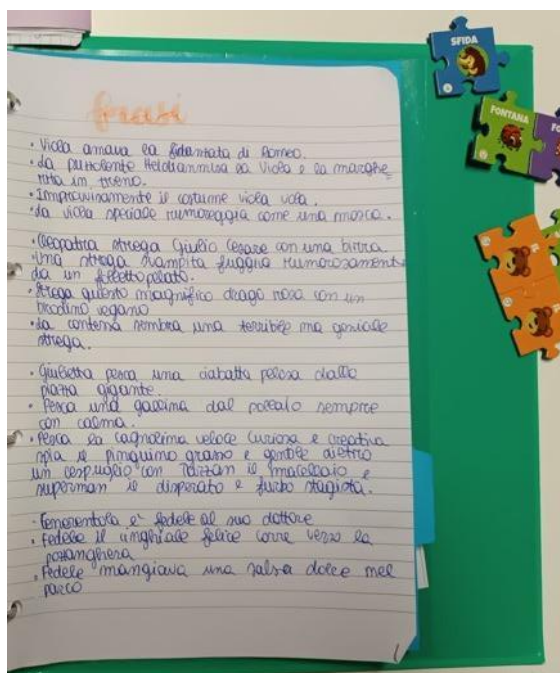 frasi
• Viola amava la fidanzata di Romeo.
• La puzzolente ha la Viola e la marghe=
rita in treno.
• Improvvisamente il costume viola vola.
• La viola speciale rumoreggia come una mosca.
• Cleopatra strega Giulio Cesare con una birra.
• Una strega stampita fuggiva rumorosamente
da un folletto pelato.
• Strega questo magnifico drago rosa con un
bicolino vegano
• La contessa sembra una terribile ma geniale
strega.
• Giulietta pesca una ciabatta pelosa dalla
piazza gigante.
• Pesca una gallina dal pollaio sempre
con calma.
• Pesca la cagnolina veloce curiosa e creativa
spia il pinguino grasso e gentile dietro
un cespuglio con Tarzan il macellaio e
superman il disperato e furbo stagista.
• Cenerentola e' fedele al suo dottore
• Fedele il cinghiale felice corre verso la
pozzanghera
• Fedele mangiava una salsa dolce nel
parco
SFIDA
FONTANA
FO